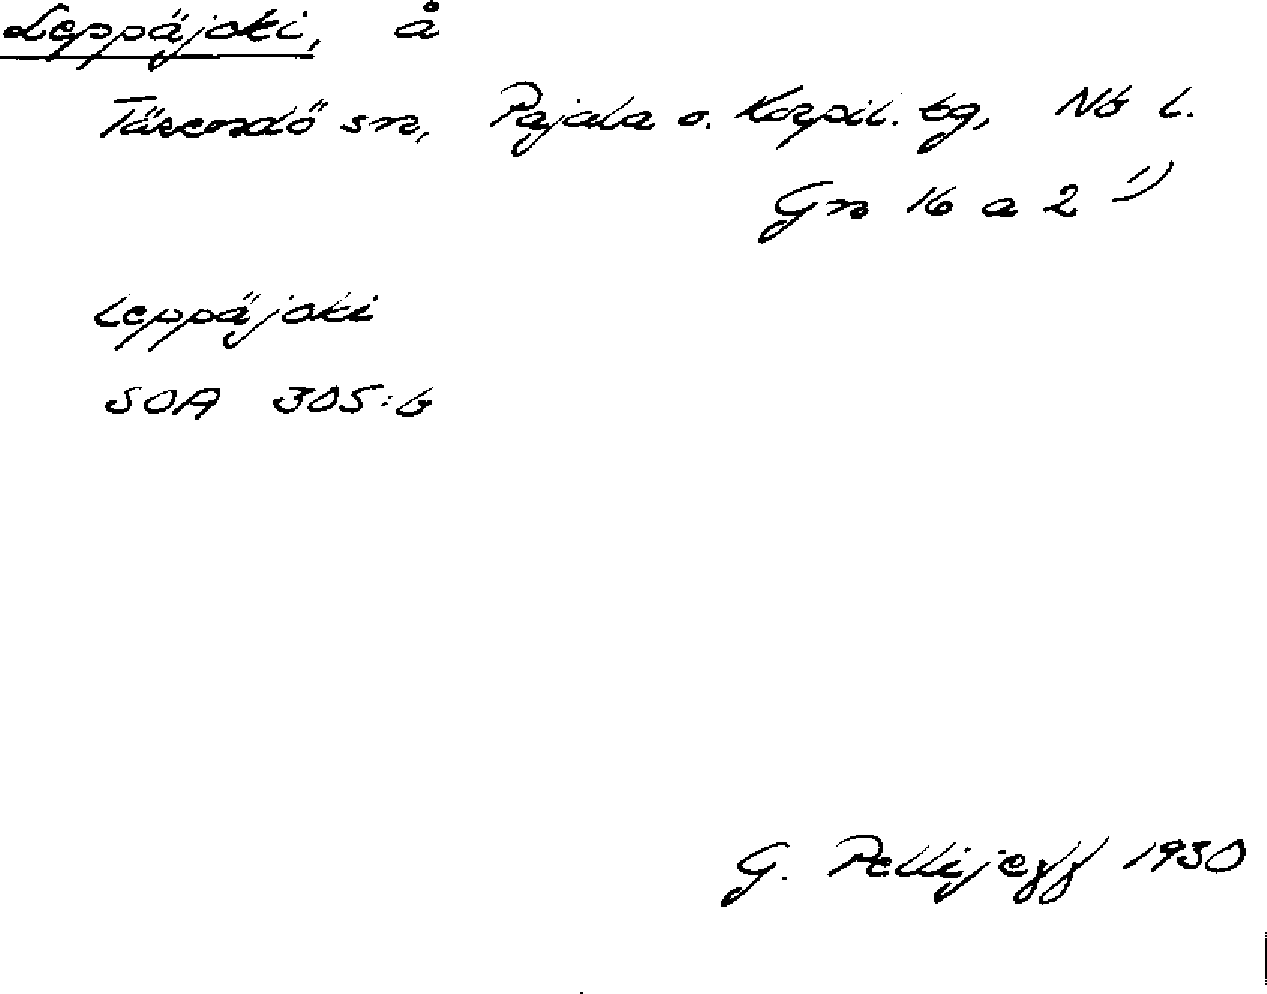 Leppäjoki, å
Tärendö sn, Pajala o. Korpil. tg, Nb l.
Gn 16 a 2 1)
Leppäjoki
SOA 305:6
G. Pellijeff 1930